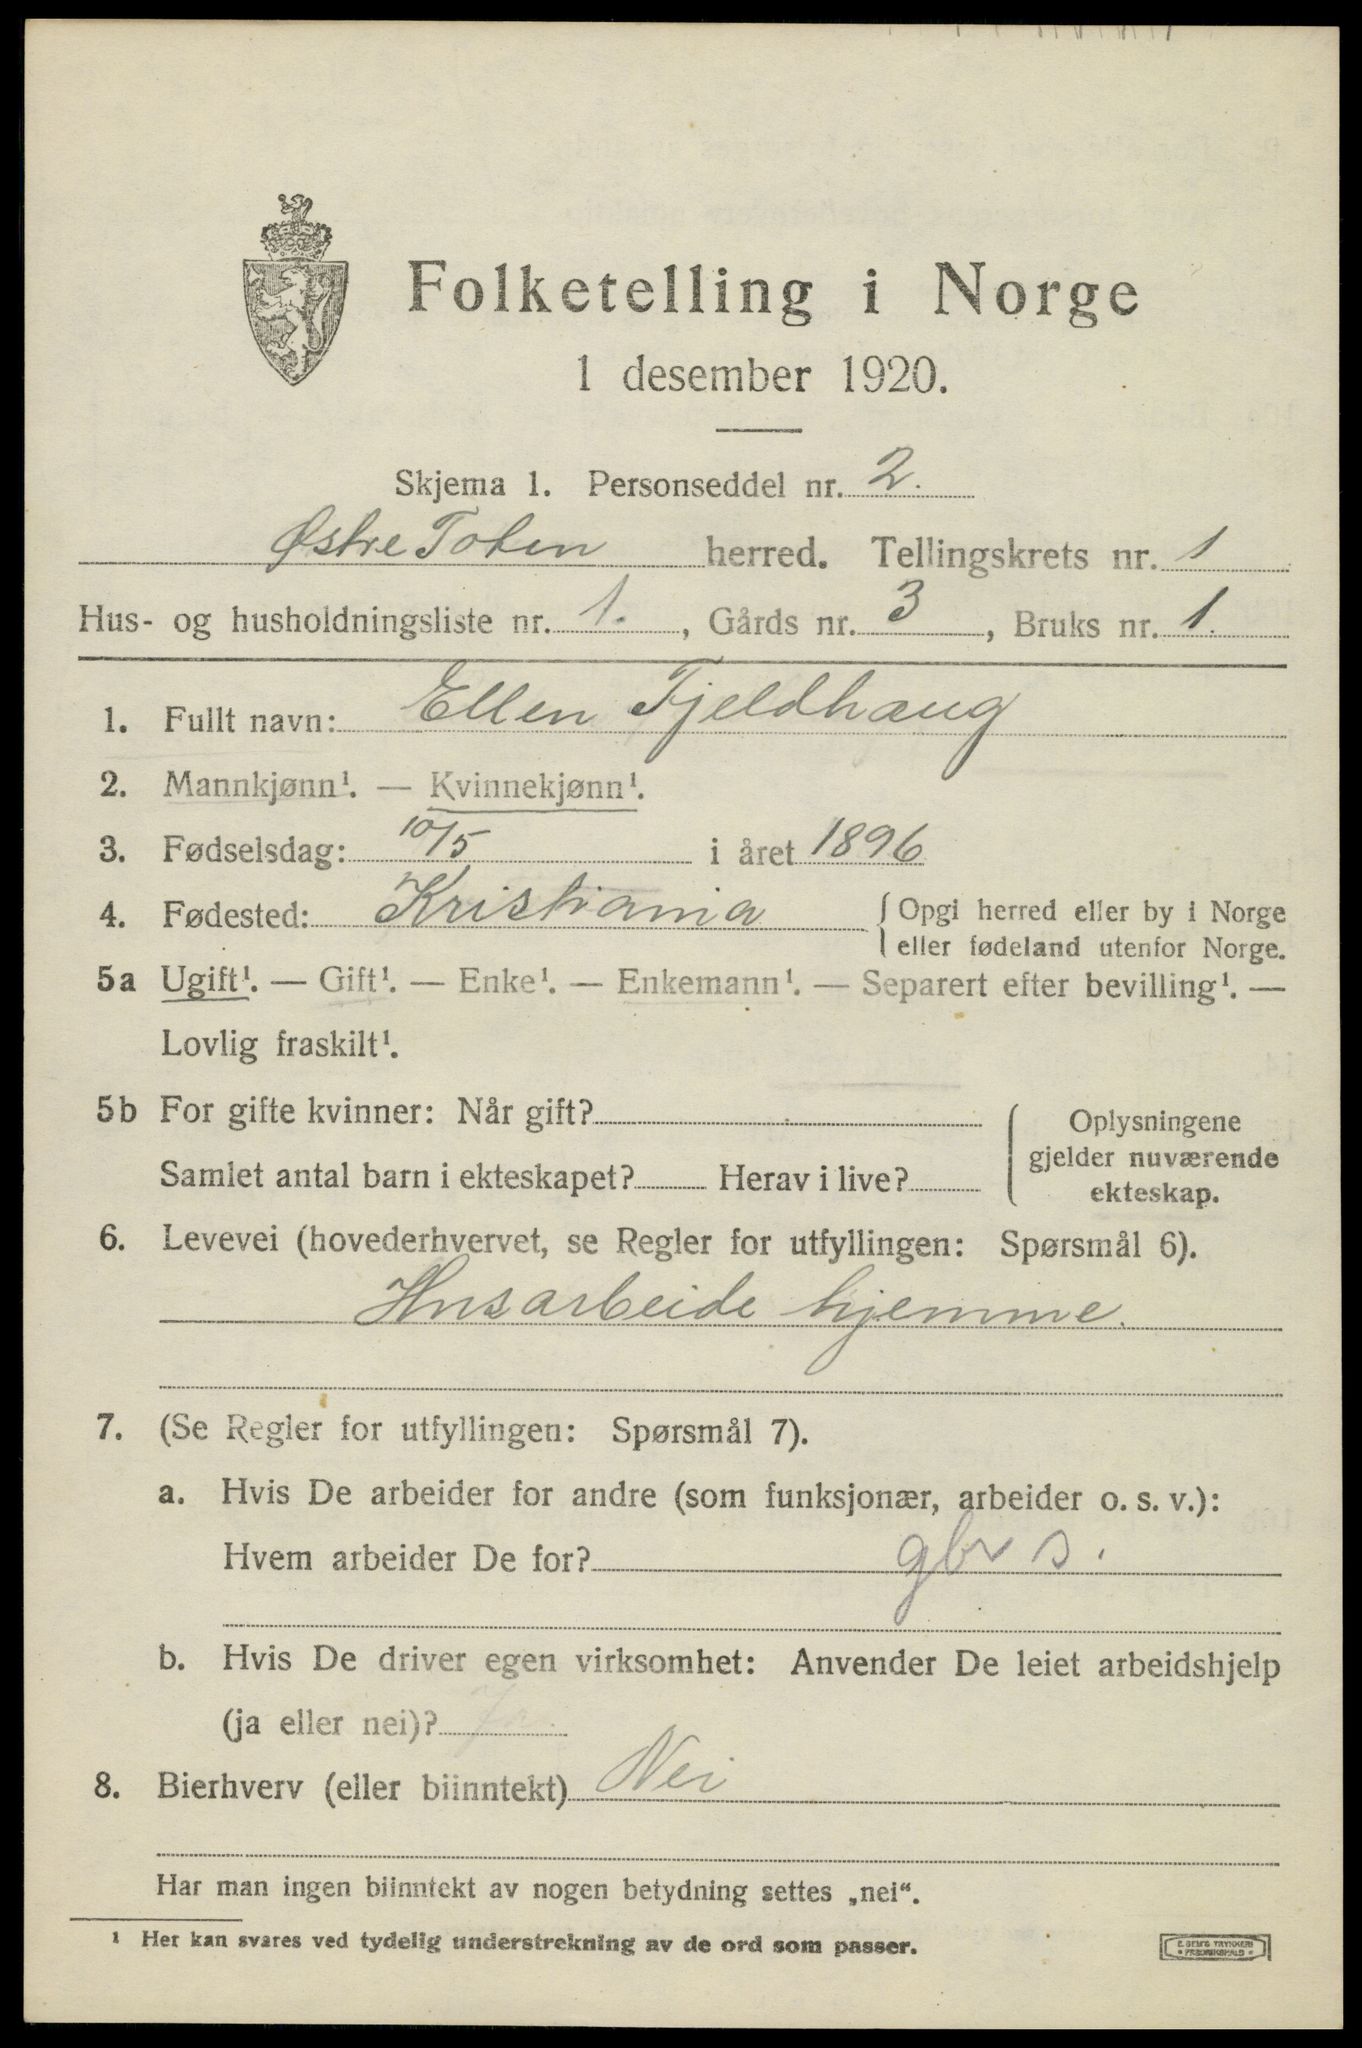 Folketelling i Norge
1 desember 1920.
Skjema 1. Personseddel nr. 2.
Østre Toten herred. Tellingskrets nr. 1
Hus- og husholdningsliste nr. 1., Gårds nr. 3, Bruks nr. 1.
1. Fullt navn: Ellen Fjeldhaug
2. Mannkjønn¹. — Kvinnekjønn¹.
3. Fødselsdag: 10/5 i året 1896
4. Fødested: Kristiania { Opgi herred eller by i Norge
eller fødeland utenfor Norge.
5a Ugift¹. — Gift¹. — Enke¹. — Enkemann¹. — Separert efter bevilling¹. —
Lovlig fraskilt¹.
5b For gifte kvinner: Når gift?
Samlet antal barn i ekteskapet? Herav i live?
Oplysningene
gjelder nuværende
ekteskap.
6. Levevei (hovederhvervet, se Regler for utfyllingen: Spørsmål 6).
Husarbeide hjemme.
7. (Se Regler for utfyllingen: Spørsmål 7).
a. Hvis De arbeider for andre (som funksjonær, arbeider o. s. v.):
Hvem arbeider De for? gbr s.
b. Hvis De driver egen virksomhet: Anvender De leiet arbeidshjelp
(ja eller nei)?
8. Bierhverv (eller biinntekt) Nei
Har man ingen biinntekt av nogen betydning settes „nei“.
¹ Her kan svares ved tydelig understrekning av de ord som passer.